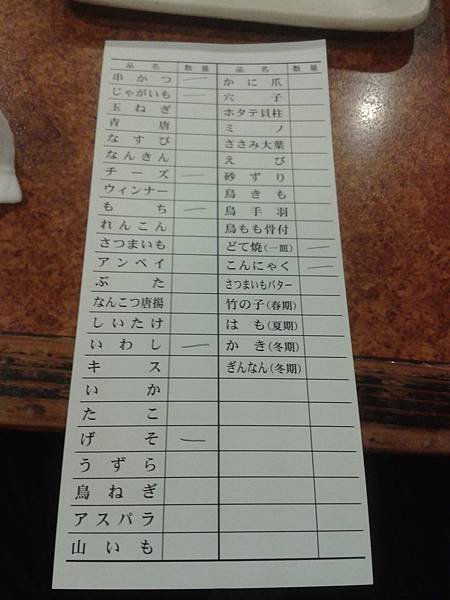 品名 数量 品名 数量
串かつ 一 かに爪
じゃがいも 一 穴子
玉ねぎ ホタテ貝柱
青唐 ミノ
なすび ささみ大葉
なんきん えび
チーズ 一 砂ずり
ウィンナー 鳥きも
もち 一 鳥手羽
れんこん 鳥もも骨付
さつまいも どて焼(一皿) 一
アンペイ こんにゃく 一
ぶた さつまいもバター
なんこつ唐揚 竹の子(春期)
しいたけ はも(夏期)
いわし 一 かき(冬期)
キス ぎんなん(冬期)
いか
たこ
げそ 一
うずら
鳥ねぎ
アスパラ
山いも